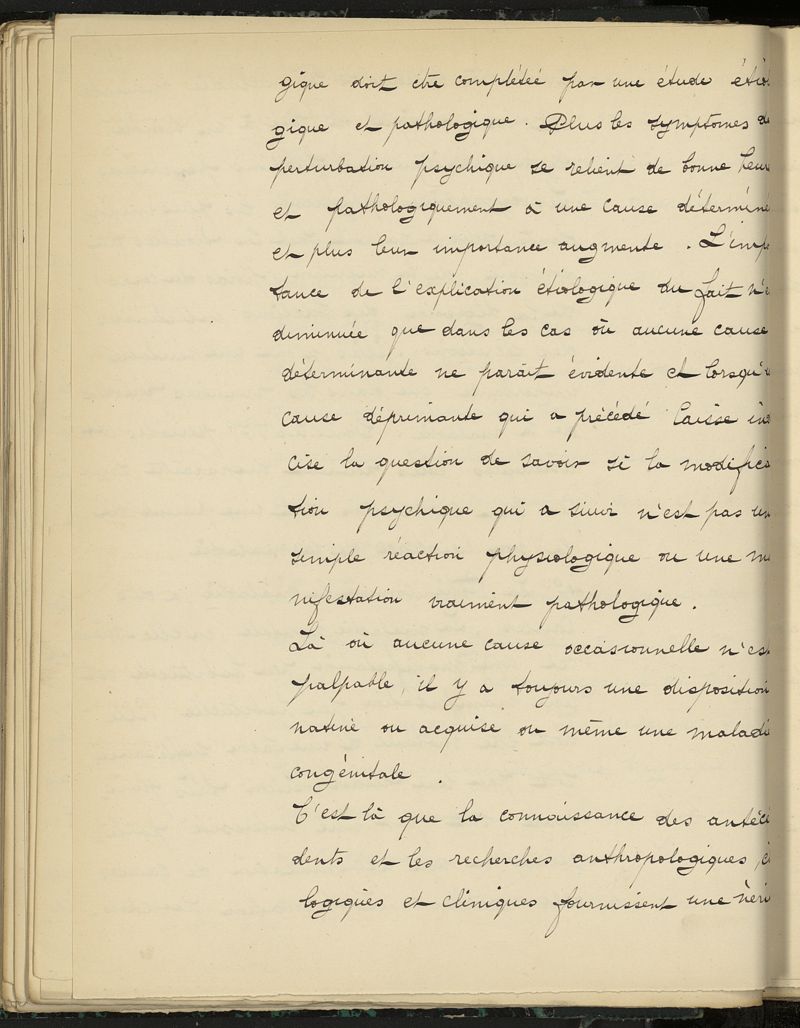 gique doit être complétée par une étude étio
gique et pathologique. Plus les symptomes d
perturbation psychique se relient de bonne heur
et pathologiquement à une cause détermine
et plus leur importance augmente. L'imp
tance de l'explication étiologique du fait n'e
diminuée que dans les cas où aucune cause
déterminante ne parait évidente et lorsqu'
cause déprimante qui a précédé laisse in
cise la question de savoir si la modifica
tion psychique qui a suivi n'est pas un
simple réaction physiologique ou une m
nifestation vraiment pathologique.
Là où aucune cause occasionnelle n'est
palpable, il y a toujours une disposition
native ou acquise ou même une maladi
congénitale.
C'est là que la connaissance des antéce
dents et les recherches anthropologiques,
logiques et cliniques fournissent une véri